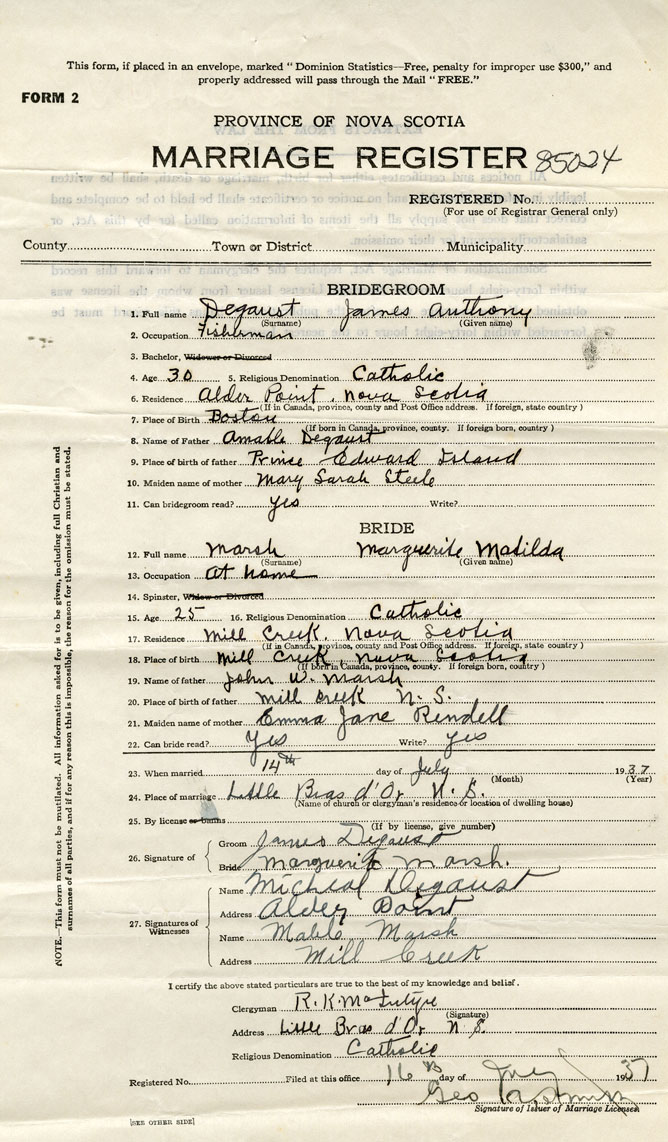 This form, if placed in an envelope, marked " Dominion Statistics—Free, penalty for improper use $300," and
properly addressed will pass through the Mail " FREE."
FORM 2
PROVINCE OF NOVA SCOTIA
MARRIAGE REGISTER 85024
REGISTERED No.
(For use of Registrar General only)
County Town or District Municipality
BRIDEGROOM
1. Full name Degaust James Anthony
(Surname) (Given name)
2. Occupation Fisherman
3. Bachelor, Widower or Divorced
4. Age 30 5. Religious Denomination Catholic
6. Residence Alder Point, Nova Scotia
(If in Canada, province, county and Post Office address. If foreign, state country )
7. Place of Birth Boston
(If born in Canada, province, county. If foreign born, country )
8. Name of Father Amable Degaust
9. Place of birth of father Prince Edward Island
10. Maiden name of mother Mary Sarah Steele
11. Can bridegroom read? yes Write?
BRIDE
12. Full name Marsh Marguerite Matilda
(Surname) (Given name)
13. Occupation At home
14. Spinster, Widow or Divorced
15. Age 25 16. Religious Denomination Catholic
17. Residence Mill Creek, Nova Scotia
(If in Canada, province, county and Post Office address. If foreign, state country )
18. Place of birth Mill Creek Nova Scotia
(If born in Canada, province, county. If foreign born, country )
19. Name of father John W. Marsh
20. Place of birth of father Mill Creek N. S.
21. Maiden name of mother Emma Jane Rendell
22. Can bride read? Yes Write? yes
23. When married 14th day of July 1937
(Month) (Year)
24. Place of marriage Little Bras d'Or N. S.
(Name of church or clergyman's residence or location of dwelling house)
25. By license or banns
(If by license, give number)
26. Signature of Groom James Degaust
Bride Marguerite Marsh.
27. Signatures of Witnesses
Name Micheal Degaust
Address Alder Point
Name Mable Marsh
Address Mill Creek
I certify the above stated particulars are true to the best of my knowledge and belief.
Clergyman R. K. McIntyre
(Signature)
Address Little Bras d'Or N S.
Religious Denomination Catholic
Registered No. Filed at this office 16th day of July 1937
Geo
Signature of Issuer of Marriage Licenses
[SEE OTHER SIDE]
NOTE.—This form must not be mutilated. All information asked for is to be given, including full Christian and
surnames of all parties, and if for any reason this is impossible, the reason for the omission must be stated.